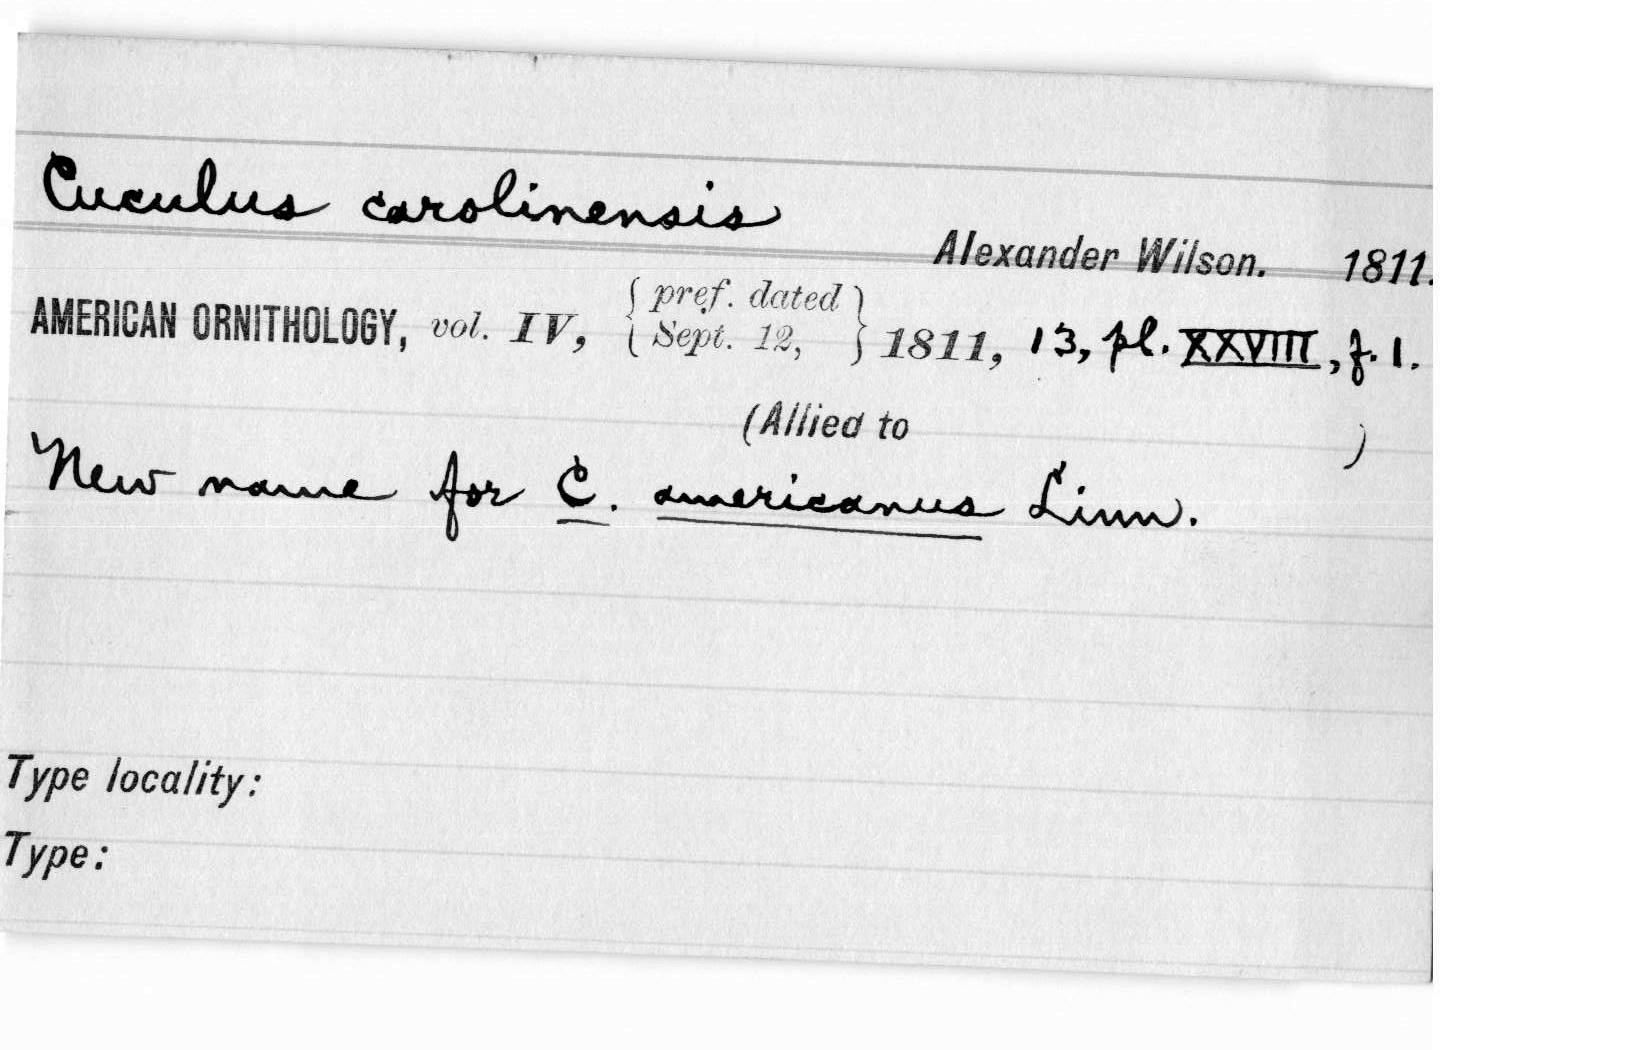 Cuculus carolinensis
Alexander Wilson. 1811.
AMERICAN ORNITHOLOGY, vol. IV, { pref. dated Sept. 12, } 1811, 13, pl. XXVIII, f. 1.
(Allied to )
New name for C. americanus Linn.
Type locality:
Type: